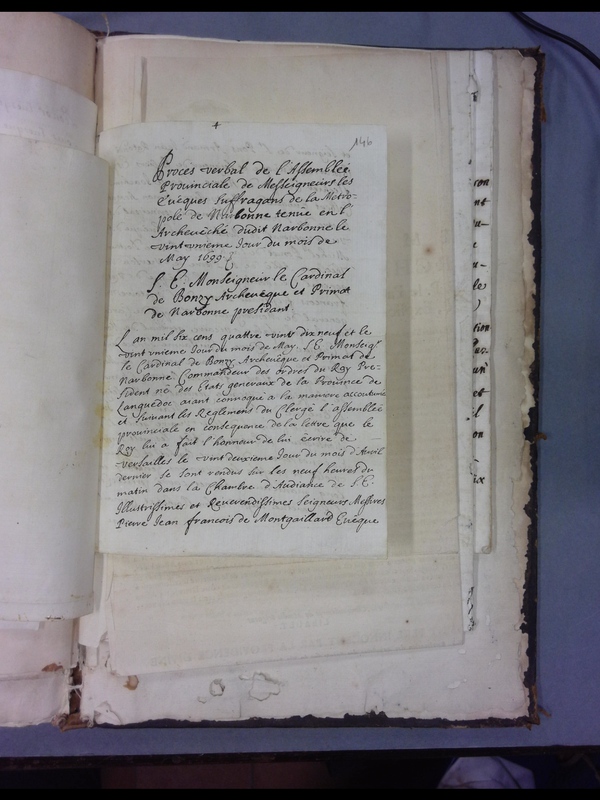 146
Proces verbal de l'Assemblée
Provinciale de Messeigneurs les
Evêques Suffragans de la Metro-
pole de Narbonne tenüe en l'
Archevêché dudit Narbonne le
vint unieme Jour du mois de
May 1699
S. E. Monseigneur le Cardinal
de Bonzy Archevêque et Primat
de Narbonne president
L an mil six cens quattre vint dix neuf et le
vint unieme Jour du mois de May, S. E. Monseigr
le Cardinal de Bonzy Archevêque et Primat de
Narbonne Commandeur des ordres du Roy Pre-
sident né des Etats generaux de la Province de
Languedoc aiant convoqué a la maniere accoutumée
et suivant les Reglemens du Clergé l'assemblée
provinciale en consequence de la lettre que le
Roy lui a fait l'honneur de lui écrire de
Versailles le vint deuxieme Jour du mois d'Avril
dernier se sont rendus sur les neuf heures du
matin dans la Chambre d'Audiance de S. E.
Illustrissimes et Reverendissimes Seigneurs Messires
Pierre Jean francois de Montgaillard Evêque
ron
nt
u-
e
u-
les
)
tion
un
et
l
on
ix